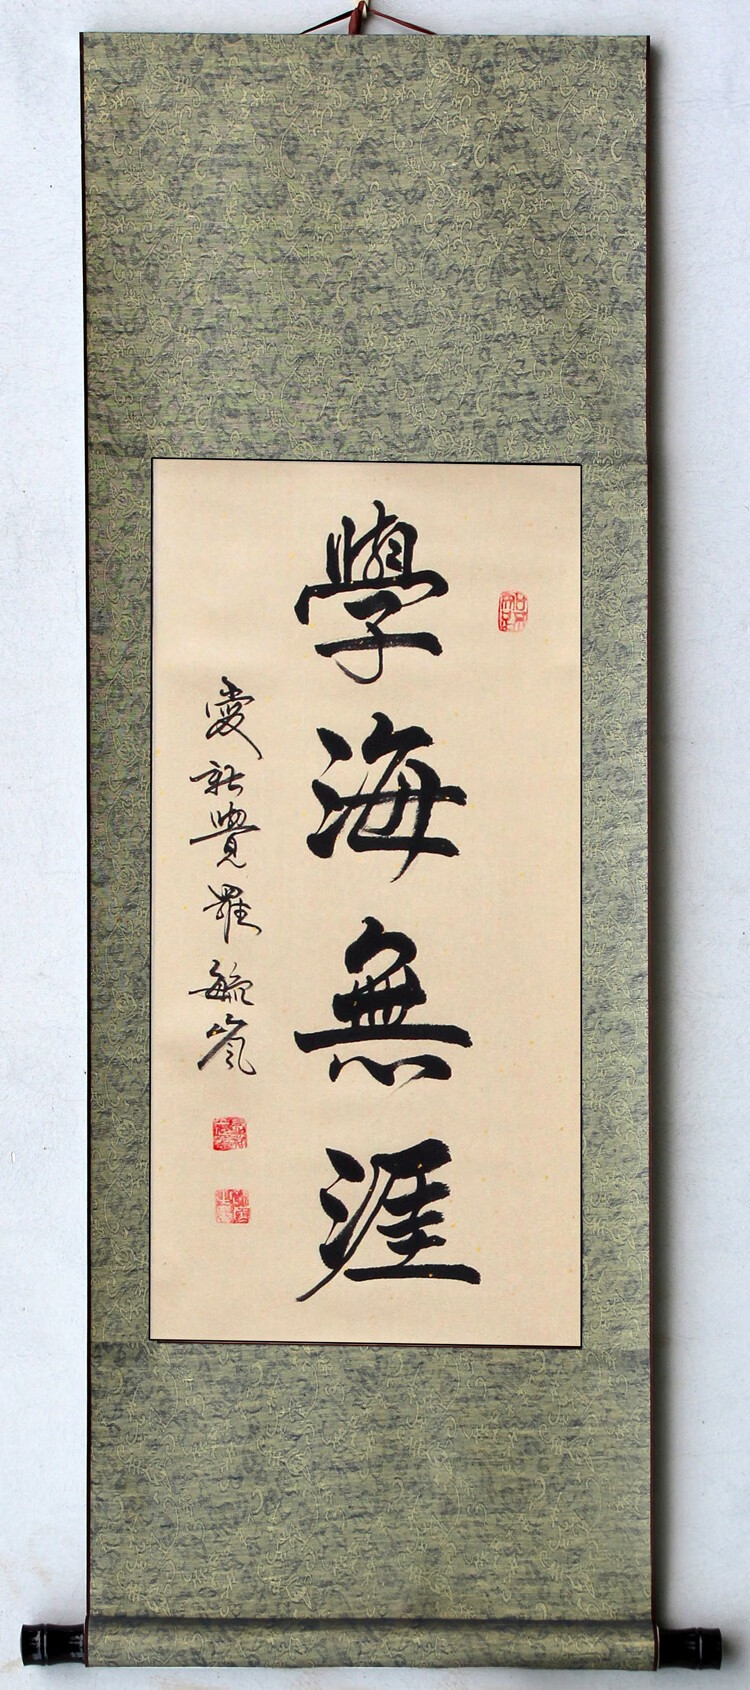 學海無涯
愛新覺羅毓嵐